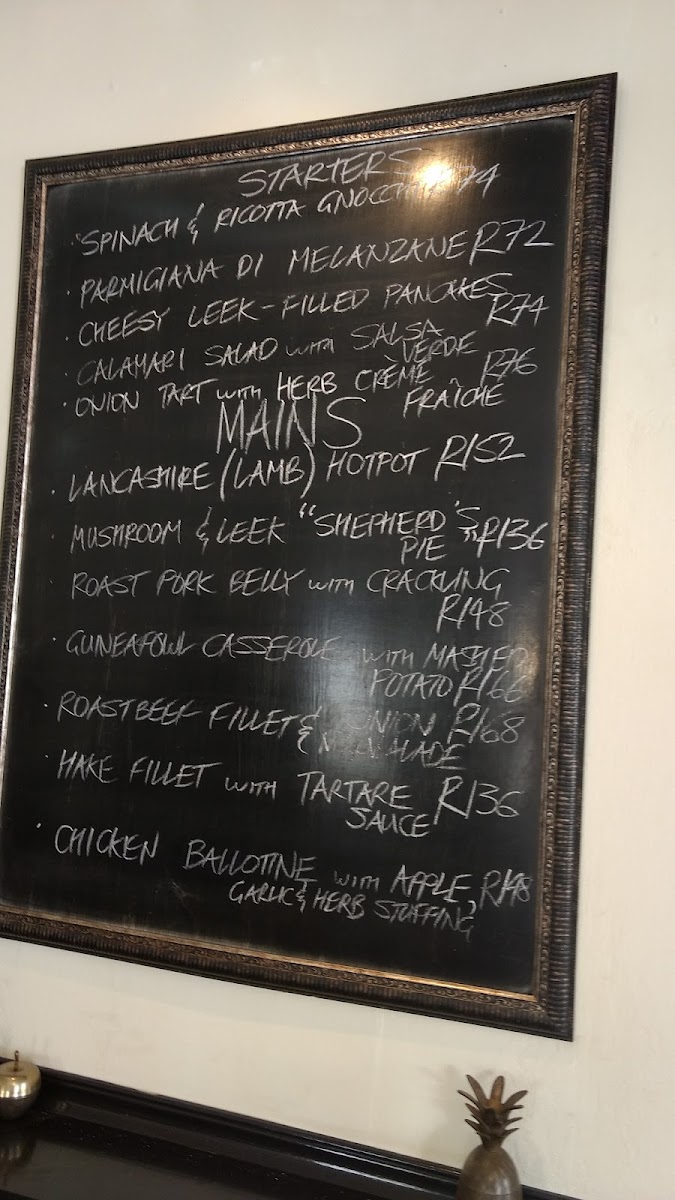 STARTERS
SPINACH & RICOTTA GNOCCHI 74
PARMIGIANA DI MELANZANE R72
CHEESY LEEK-FILLED PANCAKES
R74
CALAMARI SALAD WITH SALSA
VERDE
R76
ONION TART WITH HERB CRÈME
FRAÎCHE
MAINS
LANCASHIRE (LAMB) HOTPOT R152
MUSHROOM & LEEK "SHEPHERD'S
PIE" R136
ROAST PORK BELLY WITH CRACKLING
R148
GUNEAFOWL CASSEROLE WITH MASHED
POTATO R166
ROAST BEEF FILLET & ONION R168
HAKE FILLET WITH TARTARE R136
SAUCE
CHICKEN BALLOTINE WITH APPLE, R148
GARLIC & HERB STUFFING